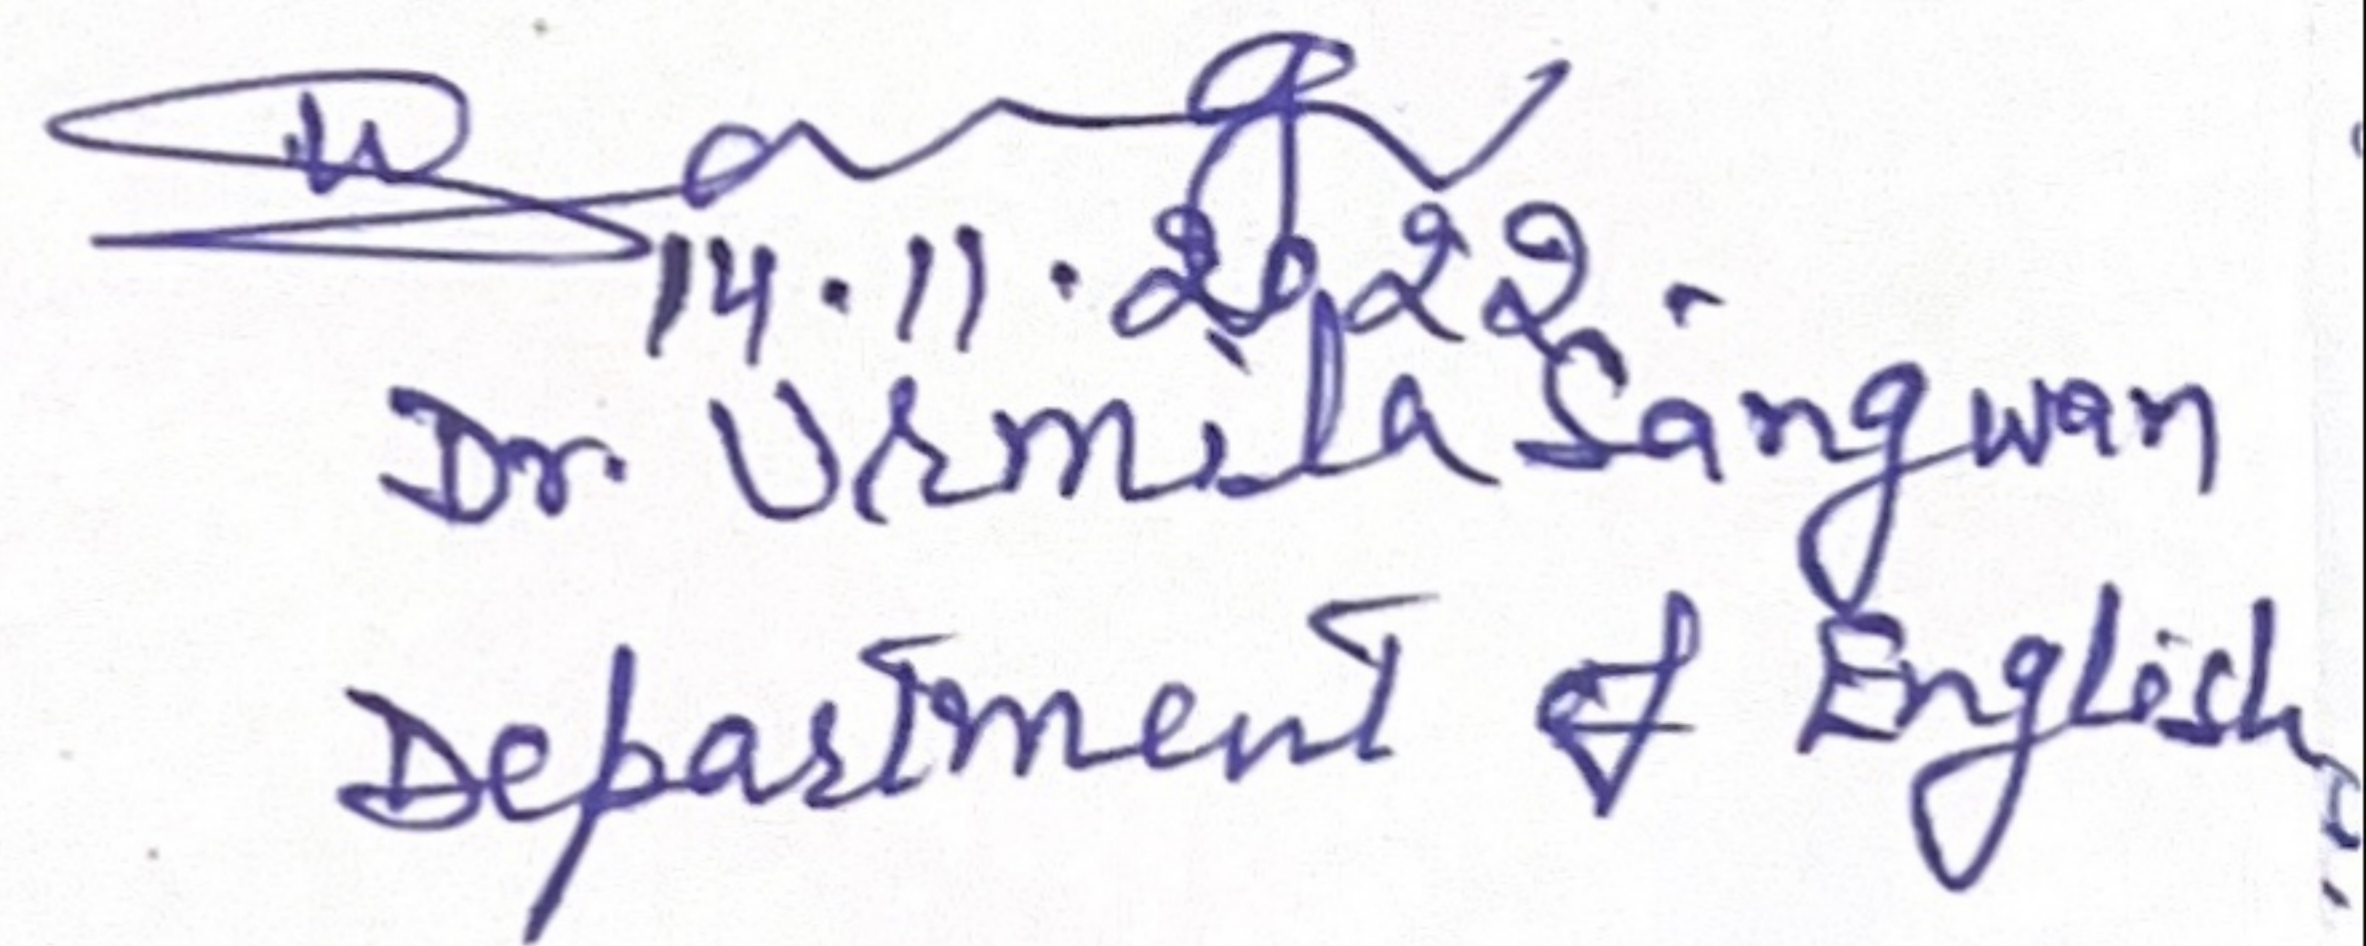 14.11.2022.
Dr. Urmila Sangwan
Department of English